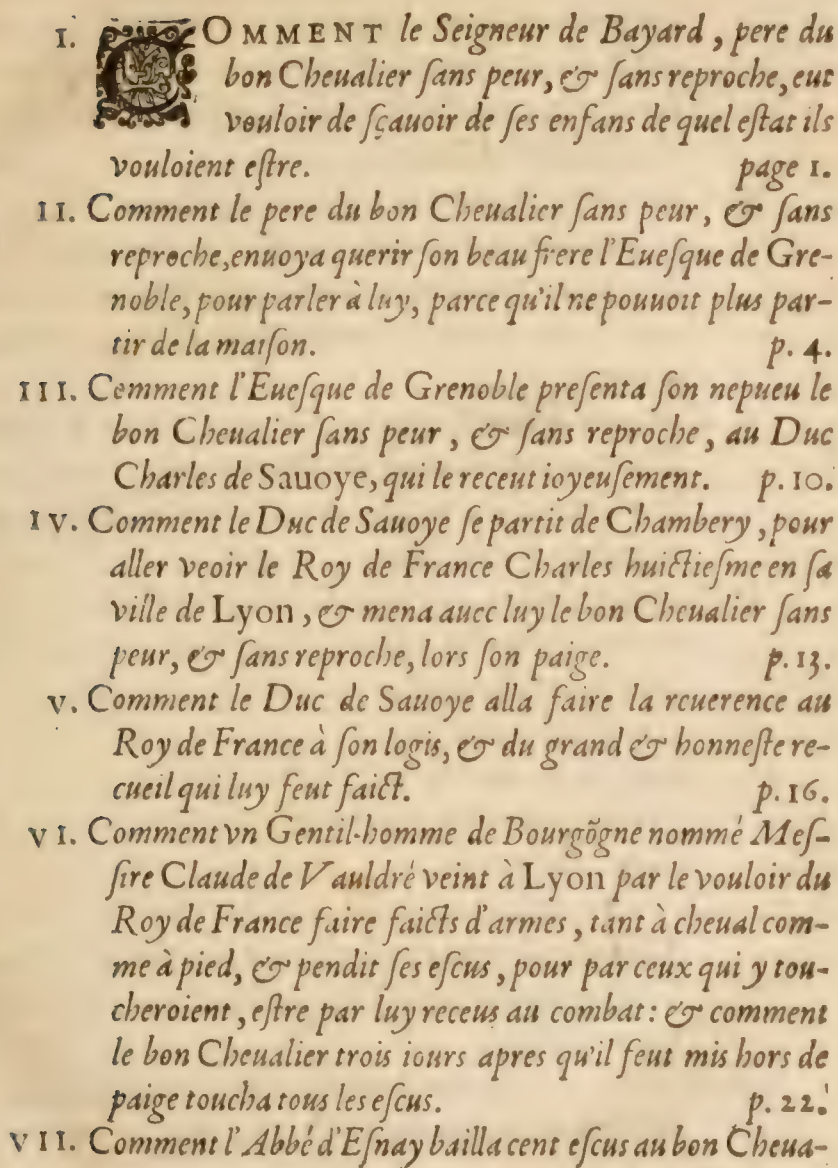 I. COMMENT le Seigneur de Bayard, pere du
bon Cheualier ſans peur, & ſans reproche, eut
vouloir de ſçauoir de ſes enfans de quel eſtat ils
vouloient eſtre. page 1.
II. Comment le pere du bon Cheualier ſans peur, & ſans
reproche, enuoya querir ſon beau frere l'Eueſque de Gre-
noble, pour parler à luy, parce qu'il ne pouuoit plus par-
tir de la maiſon. p. 4.
III. Comment l'Eueſque de Grenoble preſenta ſon nepueu le
bon Cheualier ſans peur, & ſans reproche, au Duc
Charles de Sauoye, qui le receut ioyeuſement. p. 10.
IV. Comment le Duc de Sauoye ſe partit de Chambery, pour
aller veoir le Roy de France Charles huictieſme en ſa
ville de Lyon, & mena auec luy le bon Cheualier ſans
peur, & ſans reproche, lors ſon paige. p. 13.
V. Comment le Duc de Sauoye alla faire la reuerence au
Roy de France à ſon logis, & du grand & honneſte re-
cueil qui luy feut faict. p. 16.
VI. Comment vn Gentil-homme de Bourgõgne nommé Meſ-
ſire Claude de Vauldré veint à Lyon par le vouloir du
Roy de France faire faicts d'armes, tant à cheual com-
me à pied, & pendit ſes eſcus, pour par ceux qui y tou-
cheroient, eſtre par luy receus au combat: & comment
le bon Cheualier trois iours apres qu'il feut mis hors de
paige toucha tous les eſcus. p. 22.
VII. Comment l'Abbé d'Eſnay bailla cent eſcus au bon Cheua-